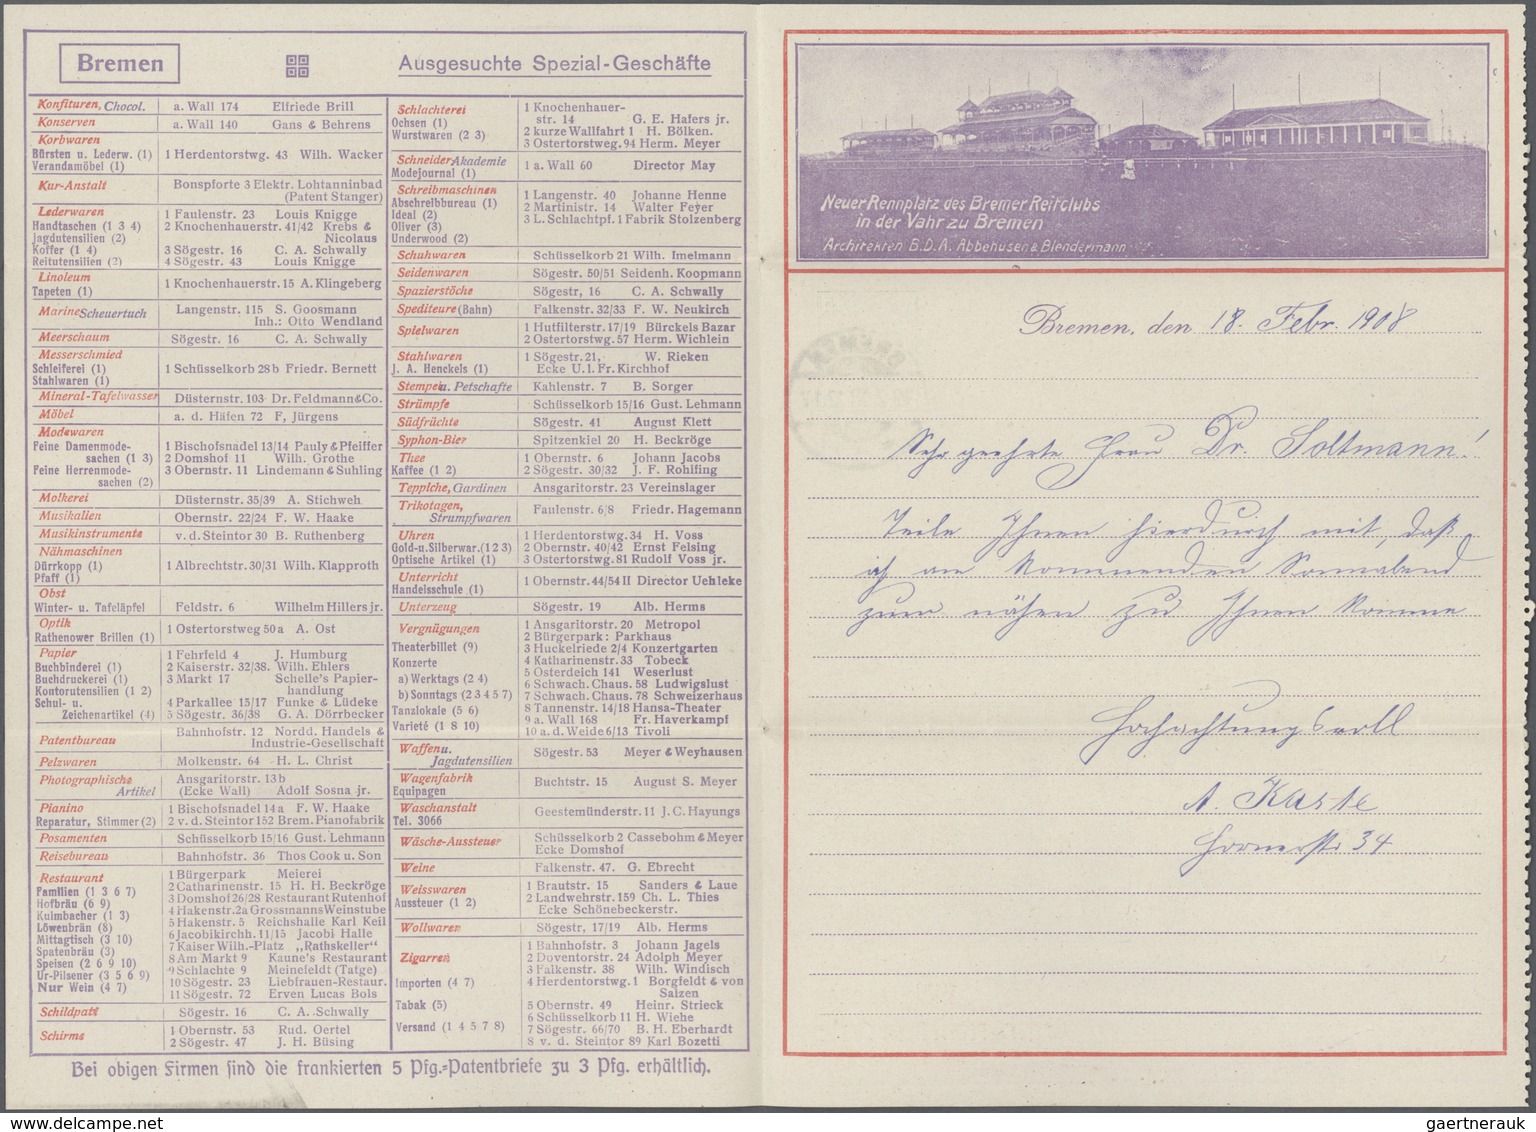 Bremen
Ausgesuchte Spezial-Geschäfte
Konfituren, Chocol. a. Wall 174 Elfriede Brill
Konserven a. Wall 140 Gans & Behrens
Korbwaren
Bürsten u. Lederw. (1) 1 Herdentorstwg. 43 Wilh. Wacker
Verandamöbel (1)
Kur-Anstalt Bonspforte 3 Elektr. Lohtanninbad
(Patent Stanger)
Lederwaren 1 Faulenstr. 23 Louis Knigge
Handtaschen (1 3 4) 2 Knochenhauerstr. 41/42 Krebs &
Jagdutensilien (2) Nicolaus
Koffer (1 4) 3 Sögestr. 16 C. A. Schwally
Reitutensilien (2) 4 Sögestr. 43 Louis Knigge
Linoleum
Tapeten (1) 1 Knochenhauerstr. 15 A. Klingeberg
Marine Scheuertuch Langenstr. 115 S. Goosmann
Inh.: Otto Wendland
Meerschaum Sögestr. 16 C. A. Schwally
Messerschmied
Schleiferei (1) 1 Schüsselkorb 28 b Friedr. Bernett
Stahlwaren (1)
Mineral-Tafelwasser Düsternstr. 103 Dr. Feldmann & Co.
Möbel a. d. Häfen 72 F, Jürgens
Modewaren
Feine Damenmode- 1 Bischofsnadel 13/14 Pauly & Pfeiffer
sachen (1 3) 2 Domshof 11 Wilh. Grothe
Feine Herrenmode- 3 Obernstr. 11 Lindemann & Suhling
sachen (2)
Molkerei Düsternstr. 35/39 A. Stichweh
Musikalien Obernstr. 22/24 F. W. Haake
Musikinstrumente v. d. Steintor 30 B. Ruthenberg
Nähmaschinen
Dürrkopp (1) 1 Albrechtstr. 30/31 Wilh. Klapproth
Pfaff (1)
Obst
Winter- u. Tafeläpfel Feldstr. 6 Wilhelm Hillers jr.
Optik
Rathenower Brillen (1) 1 Ostertorstweg 50 a A. Ost
Papier 1 Fehrfeld 4 J. Humburg
Buchbinderei (1) 2 Kaiserstr. 32/38. Wilh. Ehlers
Buchdruckerei (1) 3 Markt 17 Schelle's Papier-
Kontorutensilien (1 2) handlung
Schul- u. 4 Parkallee 15/17 Funke & Lüdeke
Zeichenartikel (4) 5 Sögestr. 36/38 G. A. Dörrbecker
Patentbureau Bahnhofstr. 12 Nordd. Handels &
Industrie-Gesellschaft
Pelzwaren Molkenstr. 64 H. L. Christ
Photographische Ansgaritorstr. 13 b
Artikel (Ecke Wall) Adolf Sosna jr.
Pianino 1 Bischofsnadel 14 a F. W. Haake
Reparatur, Stimmer (2) 2 v. d. Steintor 152 Brem. Pianofabrik
Posamenten Schüsselkorb 15/16 Gust. Lehmann
Reisebureau Bahnhofstr. 36 Thos Cook u. Son
Restaurant 1 Bürgerpark Meierei
Familien (1 3 6 7) 2 Catharinenstr. 15 H. H. Beckröge
Hofbräu (6 9) 3 Domshof 26/28 Restaurant Rutenhof
Kulmbacher (1 3) 4 Hakenstr. 2a Grossmanns Weinstube
Löwenbräu (8) 5 Hakenstr. 5 Reichshalle Karl Keil
Mittagtisch (3 10) 6 Jacobikirchh. 11/15 Jacobi Halle
Spatenbräu (3) 7 Kaiser Wilh.-Platz „Rathskeller“
Speisen (2 6 9 10) 8 Am Markt 9 Kaune's Restaurant
Ur-Pilsener (3 5 6 9) 9 Schlachte 9 Meinefeldt (Tatge)
Nur Wein (4 7) 10 Sögestr. 23 Liebfrauen-Restaur.
11 Sögestr. 72 Erven Lucas Bols
Schildpatt Sögestr. 16 C. A. Schwally
Schirme 1 Obernstr. 53 Rud. Oertel
2 Sögestr. 47 J. H. Büsing
Schlachterei 1 Knochenhauer-
Ochsen (1) str. 14 G. E. Hafers jr.
Wurstwaren (2 3) 2 kurze Wallfahrt 1 H. Bölken.
3 Ostertorstwg. 94 Herm. Meyer
Schneider Akademie
Modejournal (1) 1 a. Wall 60 Director May
Schreibmaschinen 1 Langenstr. 40 Johanne Henne
Abschreibbureau (1) 2 Martinistr. 14 Walter Feyer
Ideal (2) 3 L. Schlachtpf. 1 Fabrik Stolzenberg
Oliver (3)
Underwood (2)
Schuhwaren Schüsselkorb 21 Wilh. Imelmann
Seidenwaren Sögestr. 50/51 Seidenh. Koopmann
Spazierstöche Sögestr, 16 C. A. Schwally
Spediteure (Bahn) Falkenstr. 32/33 F. W. Neukirch
Spielwaren 1 Hutfilterstr. 17/19 Bürckels Bazar
2 Ostertorstwg. 57 Herm. Wichlein
Stahlwaren 1 Sögestr. 21, W. Rieken
J. A. Henckels (1) Ecke U. l. Fr. Kirchhof
Stempel u. Petschafte Kahlenstr. 7 B. Sorger
Strümpfe Schüsselkorb 15/16 Gust. Lehmann
Südfrüchte Sögestr. 41 August Klett
Syphon-Bier Spitzenkiel 20 H. Beckröge
Thee 1 Obernstr. 6 Johann Jacobs
Kaffee (1 2) 2 Sögestr. 30/32 J. F. Rohlfing
Teppiche, Gardinen Ansgaritorstr. 23 Vereinslager
Trikotagen, Faulenstr. 6/8 Friedr. Hagemann
Strumpfwaren
Uhren 1 Herdentorstwg. 34 H. Voss
Gold- u. Silberwar. (1 2 3) 2 Obernstr. 40/42 Ernst Felsing
Optische Artikel (1) 3 Ostertorstwg. 81 Rudolf Voss jr.
Unterricht
Handelsschule (1) 1 Obernstr. 44/54 II Director Uehleke
Unterzeug Sögestr. 19 Alb. Herms
Vergnügungen 1 Ansgaritorstr. 20 Metropol
2 Bürgerpark: Parkhaus
Theaterbillet (9) 3 Huckelriede 2/4 Konzertgarten
Konzerte 4 Katharinenstr. 33 Tobeck
a) Werktags (2 4) 5 Osterdeich 141 Weserlust
6 Schwach. Chaus. 58 Ludwigslust
b) Sonntags (2 3 4 5 7) 7 Schwach. Chaus. 78 Schweizerhaus
Tanzlokale (5 6) 8 Tannenstr. 14/18 Hansa-Theater
Varieté (1 8 10) 9 a. Wall 168 Fr. Haverkampf
10 a. d. Weide 6/13 Tivoli
Waffen u. Sögestr. 53 Meyer & Weyhausen
Jagdutensilien
Wagenfabrik Buchtstr. 15 August S. Meyer
Equipagen
Waschanstalt Geestemünderstr. 11 J. C. Hayungs
Tel. 3066
Wäsche-Aussteuer Schüsselkorb 2 Cassebohm & Meyer
Ecke Domshof
Weine Falkenstr. 47. G. Ebrecht
Weisswaren 1 Brautstr. 15 Sanders & Laue
Aussteuer (1 2) 2 Landwehrstr. 159 Ch. L. Thies
Ecke Schönebeckerstr.
Wollwaren Sögestr, 17/19 Alb. Herms
Zigarren 1 Bahnhofstr. 3 Johann Jagels
2 Doventorstr. 24 Adolph Meyer
3 Falkenstr. 38 Wilh. Windisch
Importen (4 7) 4 Herdentorstwg. 1 Borgfeldt & von
Salzen
Tabak (5) 5 Obernstr. 49 Heinr. Strieck
6 Schüsselkorb 11 H. Wiehe
Versand (1 4 5 7 8) 7 Sögestr. 66/70 B. H. Eberhardt
8 v. d. Steintor 89 Karl Bozetti
Bei obigen Firmen sind die frankierten 5 Pfg.-Patentbriefe zu 3 Pfg. erhältlich.
Neuer Rennplatz des Bremer Reitclubs
in der Vahr zu Bremen
Architekten B. D. A. Abbehusen & Blendermann
Bremen, den 18. Febr. 1908
Sehr geehrte Frau Dr. Soltmann!
Teile Ihnen hierdurch mit, daß
ich am kommenden Sonnabend
zum nähen zu Ihnen komme
Hochachtungsvoll
A. Kaste
Hornerstr. 34
gaertnerauk @ delcampe.net